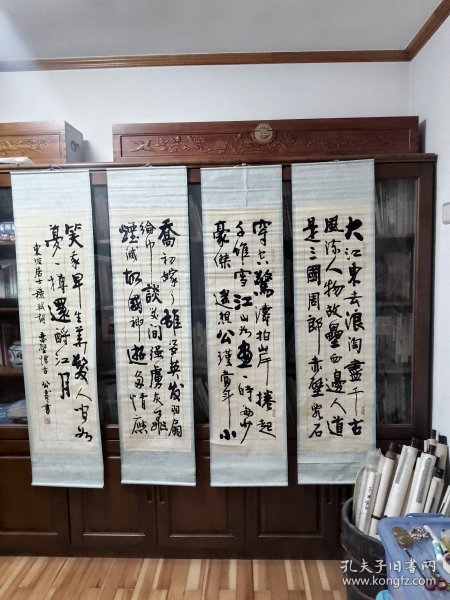 大江東去浪淘盡千古
風流人物故壘西邊人道
是三國周郎赤壁亂石
穿空驚濤拍岸捲起
千堆雪江山如畫一時多少
豪傑遙想公瑾當年小
喬初嫁了雄姿英發羽扇
綸巾談笑間強虜灰飛
煙滅故國神遊多情應
笑我早生華髮人間如
夢一樽還酹江月
東坡居士
孔夫子旧书网
www.kongfz.com